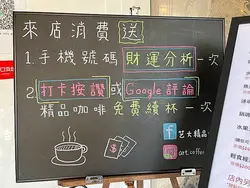 來店消費 送
1.手機號碼 財運分析 一次
2.打卡按讚 或 Google評論
精品咖啡 免費續杯 一次
艺大精品
art.coffee